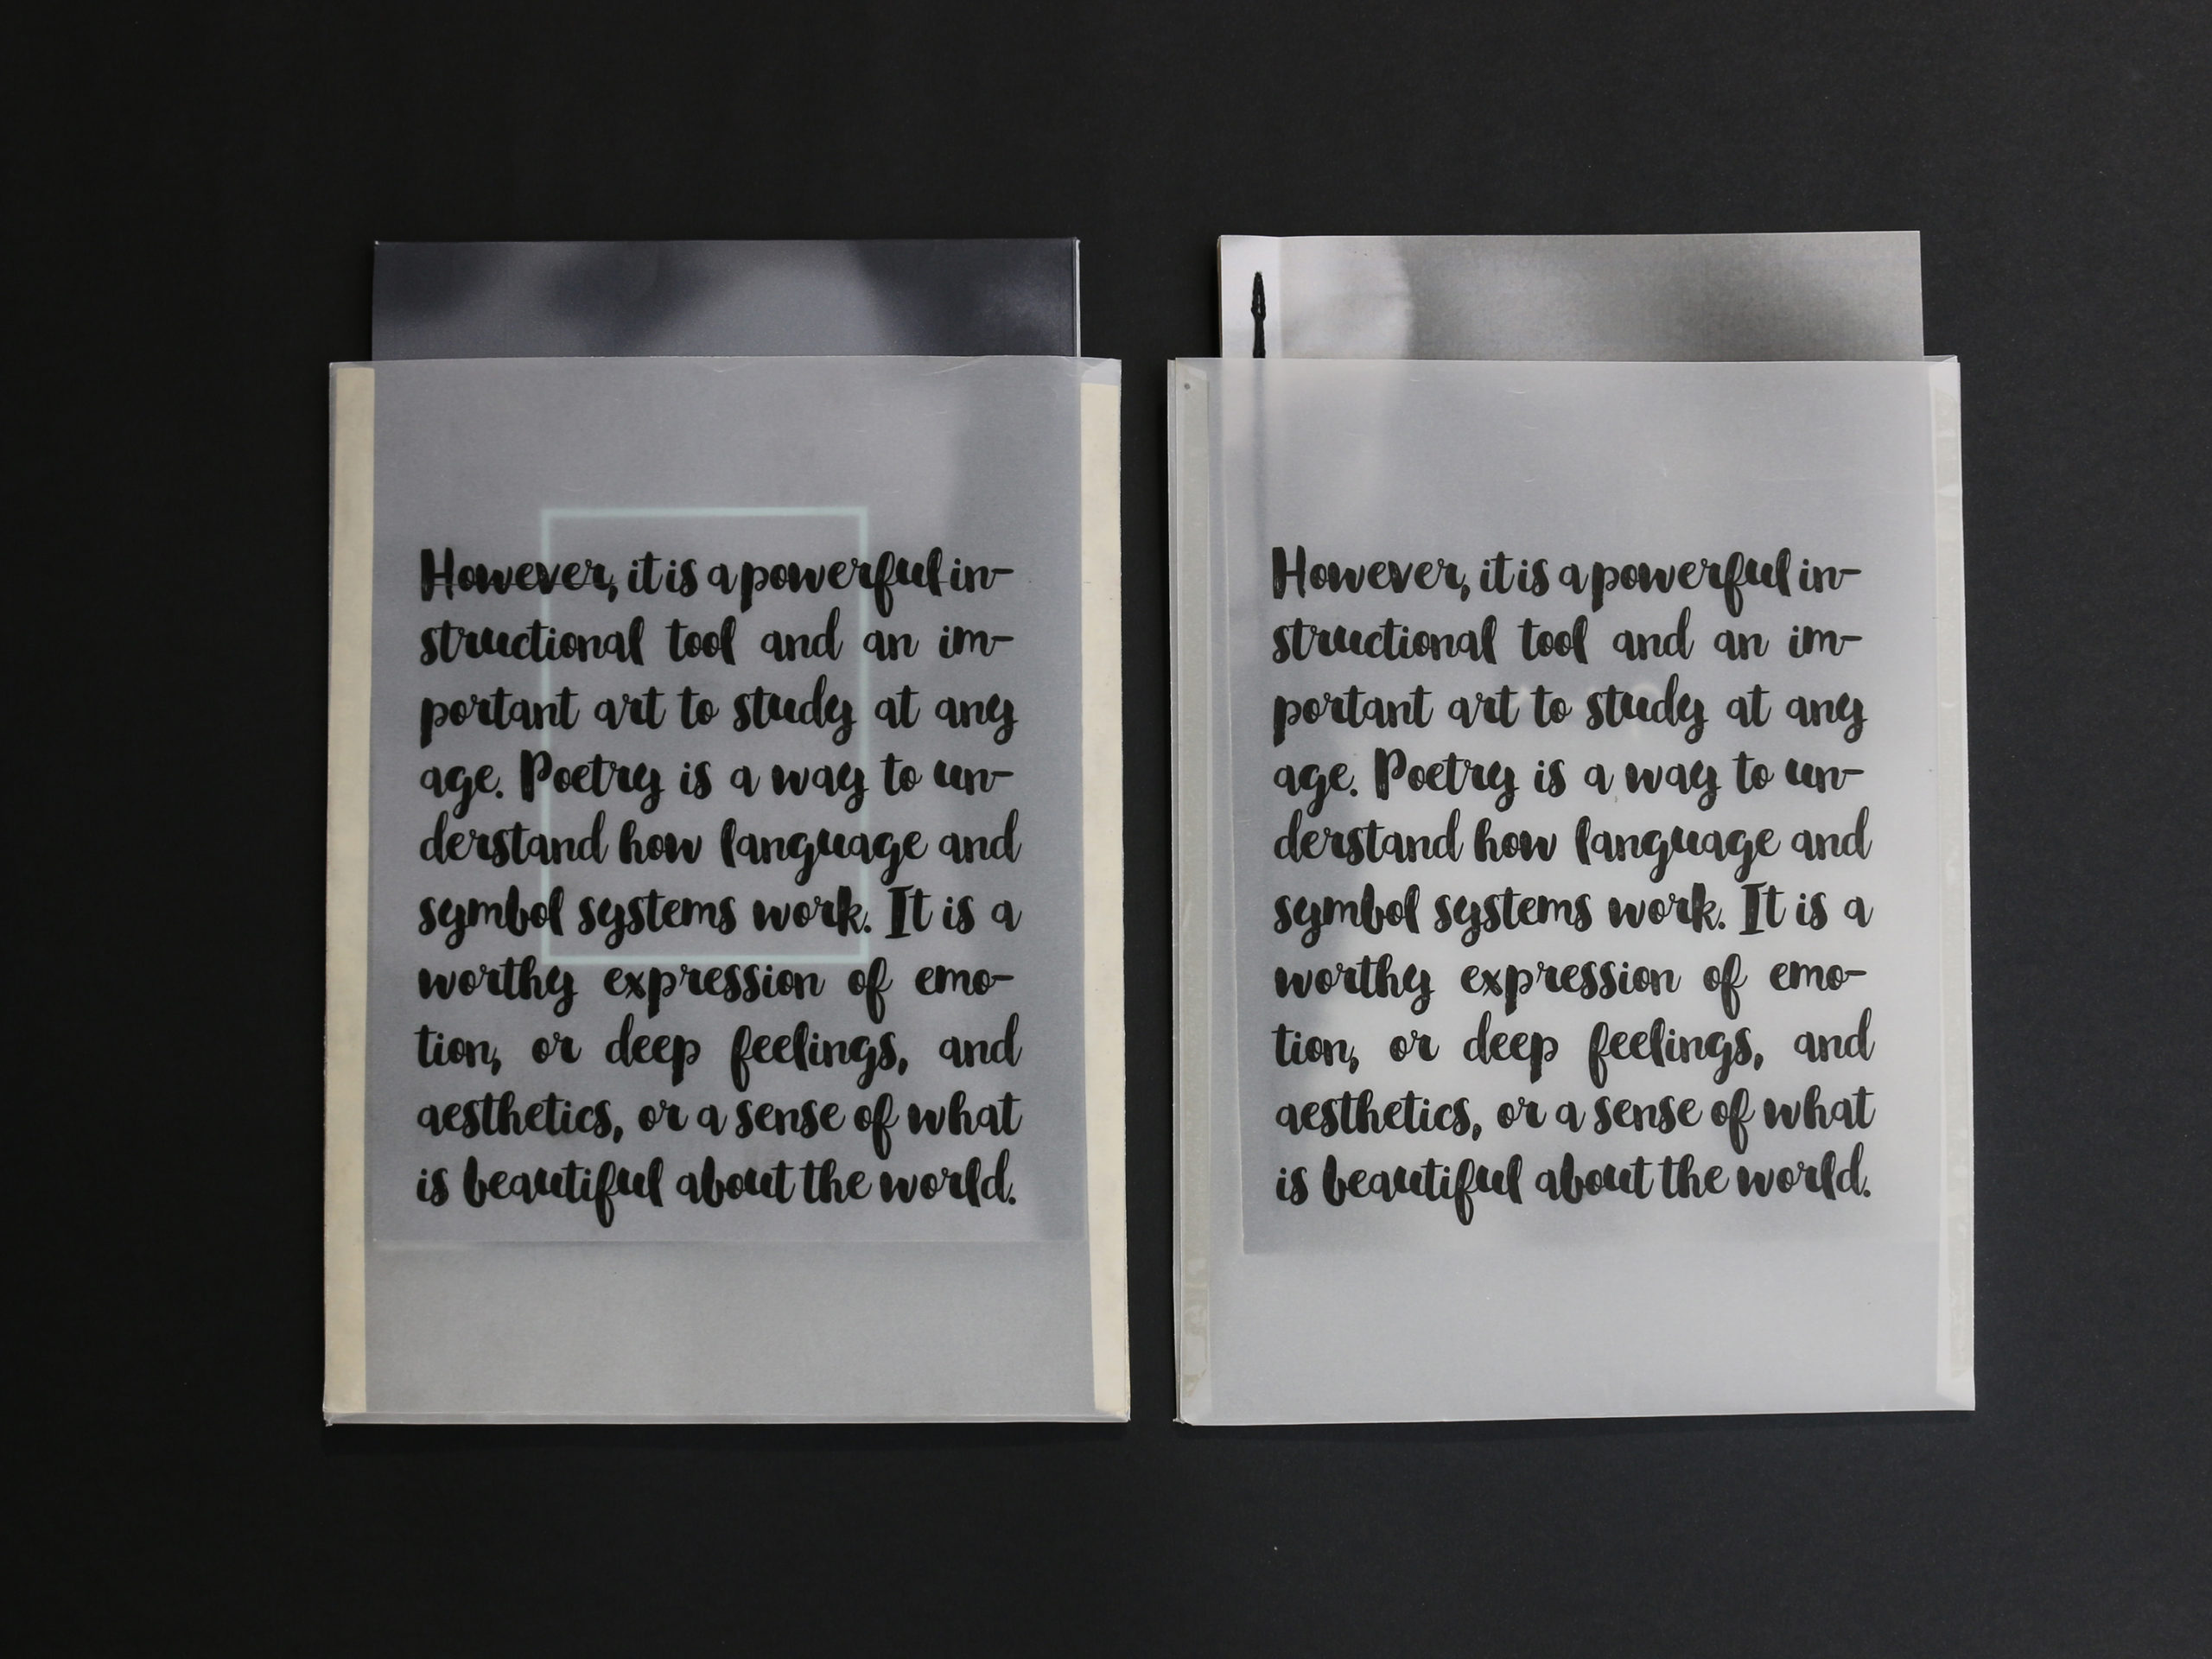 However, it is a powerful in-
structional tool and an im-
portant art to study at any
age. Poetry is a way to un-
derstand how language and
symbol systems work. It is a
worthy expression of emo-
tion, or deep feelings, and
aesthetics, or a sense of what
is beautiful about the world.
However, it is a powerful in-
structional tool and an im-
portant art to study at any
age. Poetry is a way to un-
derstand how language and
symbol systems work. It is a
worthy expression of emo-
tion, or deep feelings, and
aesthetics, or a sense of what
is beautiful about the world.